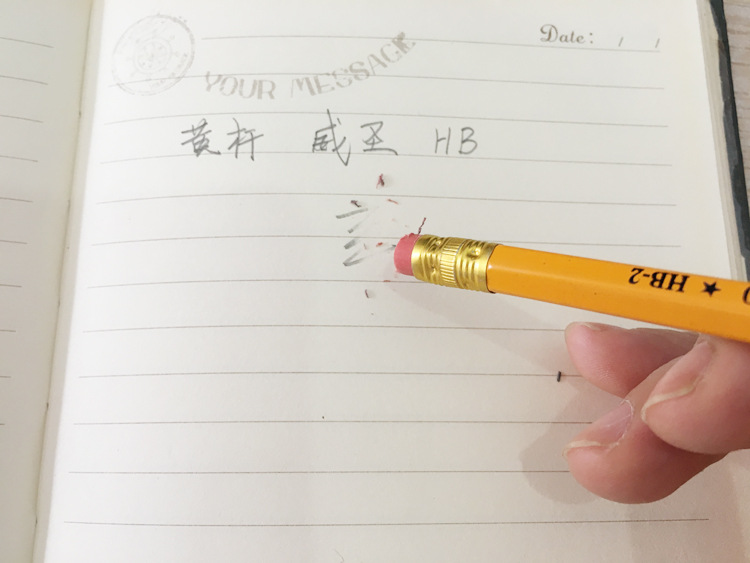 Date: / /
YOUR MESSAGE
黄杆 威王 HB
HB-2 ★